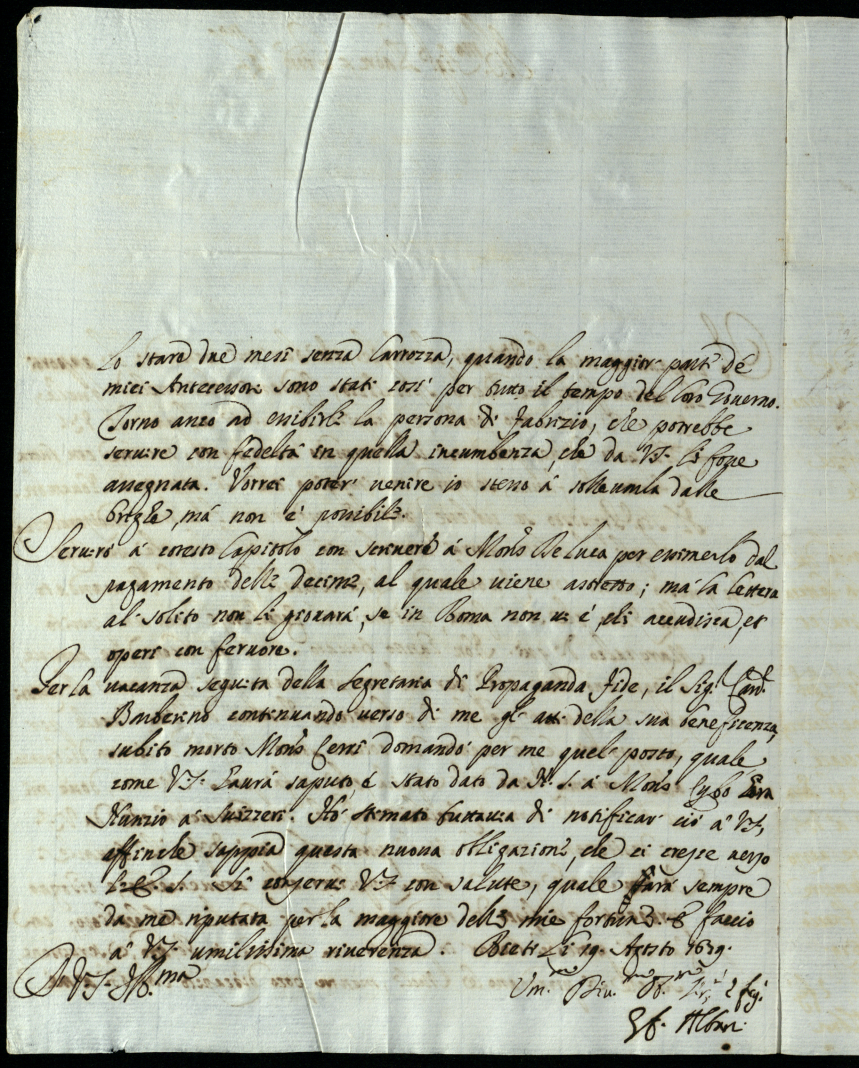 lo stare due mesi senza Carrozza, quando la maggior part de
miei Antecessori sono stati così per tutto il tempo del loro Governo.
Torno anco ad esibirle la persona di Fabrizio, che potrebbe
servire con fedeltà in quella incumbenza, che da V.S. li fosse
assegnata. Vorrei poter venire io stesso à sollevarla dalle
brighe, mà non è possibile.
Servirò à cotesto Capitolo con scriverò à Mons.r De Luca per esimerlo dal
pagamento delle decime, al quale viene astretto; mà la lettera
al solito non li giovarà, se in Roma non vi è chi accudisca, et
operi con fervore.
Per la vacanza seguita della segretaria di Propaganda Fide, il Sig.r Card.
Barberino continuando verso di me gl'atti della sua beneficenza,
subito morto Mons.r Cerri domandò per me quel posto, quale
come V.S. haurà saputo è stato dato da N. S. à Mons.r Cybo
Nunzio à Suizzeri. Hò stimato tuttavia di notificar ciò à V.S.
affinche sappia questa nuova obligazione, che ci cresce verso
S. E. Si conservi V.S. con salute, quale sarà sempre
da me riputata per la maggiore delle mie fortune. E faccio
à V.S. umilissima riverenza. Rieti li 19. Agosto 1679.
D V.S. Ill.ma
Um.mo Div.mo Ob.mo e fig.
Albani